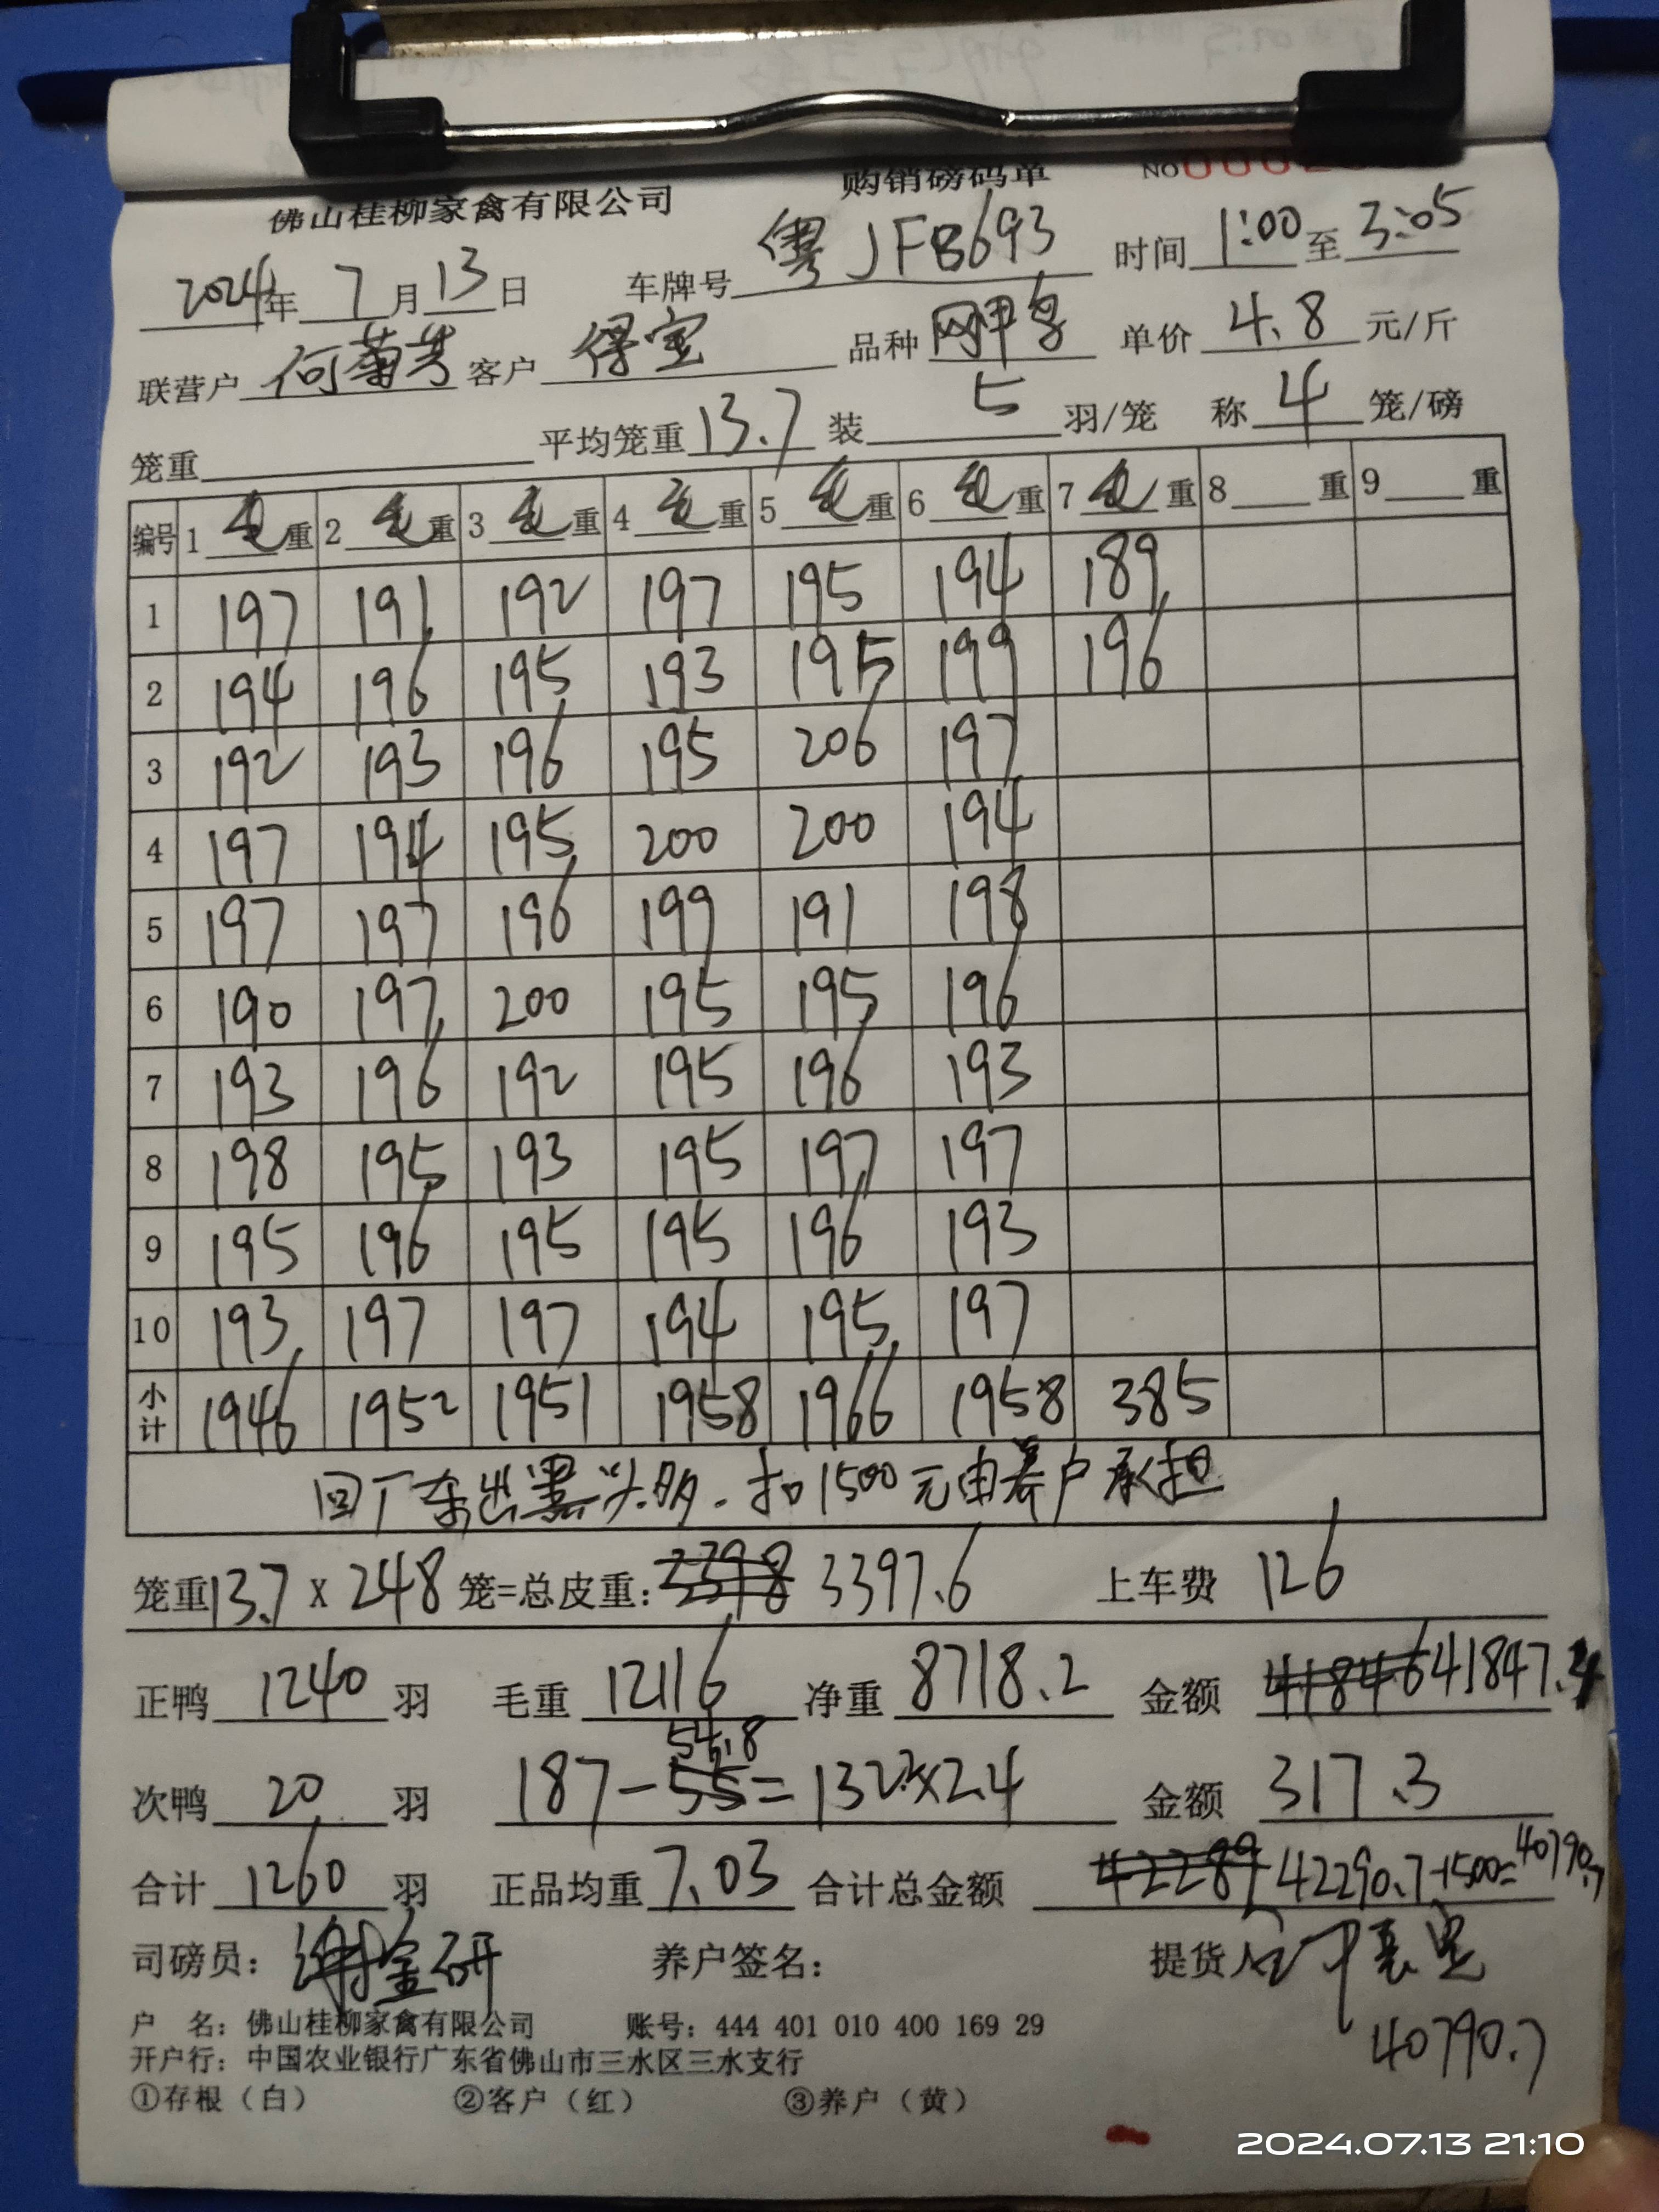 佛山桂柳家禽有限公司 购销磅码单 NO
2024年 7月13日 车牌号 粤JFB693 时间 1:00至3:05
联营户 何菊芳 客户 得宝 品种 单价 4.8 元/斤
笼重 平均笼重 13.7 装 5 羽/笼 称 4 笼/磅
编号 1 毛重 2 毛重 3 毛重 4 毛重 5 毛重 6 毛重 7 毛重 8 重 9 重
1 197 191 192 197 195 194 189
2 194 196 195 193 195 199 196
3 192 193 196 195 206 197
4 197 194 195 200 200 194
5 197 197 196 199 191 198
6 190 197 200 195 195 196
7 193 196 192 195 196 193
8 198 195 193 195 197 197
9 195 196 195 195 196 193
10 193 197 197 194 195 197
小计 1946 1952 1951 1958 1966 1958 385
回厂车出黑头多.扣1500元由养户承担
笼重13.7 x 248 笼=总皮重: 3398 3397.6 上车费 126
正鸭 1240 羽 毛重 12116 净重 8718.2 金额 41846 41847.4
54.8
次鸭 20 羽 187-55=132.2×2.4 金额 317.3
合计 1260 羽 正品均重 7.03 合计总金额 42289 42290.7-1500=40790.7
司磅员: 谢金研 养户签名: 提货人
户 名: 佛山桂柳家禽有限公司 账号: 444 401 010 400 169 29
40790.7
开户行: 中国农业银行广东省佛山市三水区三水支行
①存根(白) ②客户(红) ③养户(黄)
2024.07.13 21:10